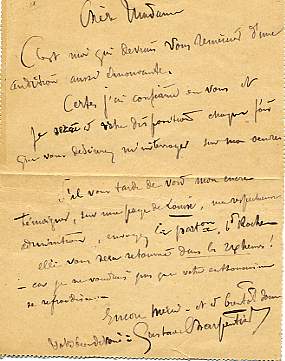 Chère Madame
C'est moi qui devrais vous remercier d'une
audition aussi émouvante.
Certes j'ai confiance en vous et
je reste à votre disposition chaque fois
que vous désirerez m'interroger sur mon œuvre.
S'il vous tarde de voir mon encre
témoigner, sur une page de Louise, ma respectueuse
admiration, envoyez la parton, Bd Rochech
elle vous sera retournée dans les 24 heures!
— car je ne voudrais pas que votre enthousiasme
se refroidisse.
Encore merci — et à bientôt donc
Gustave Charpentier